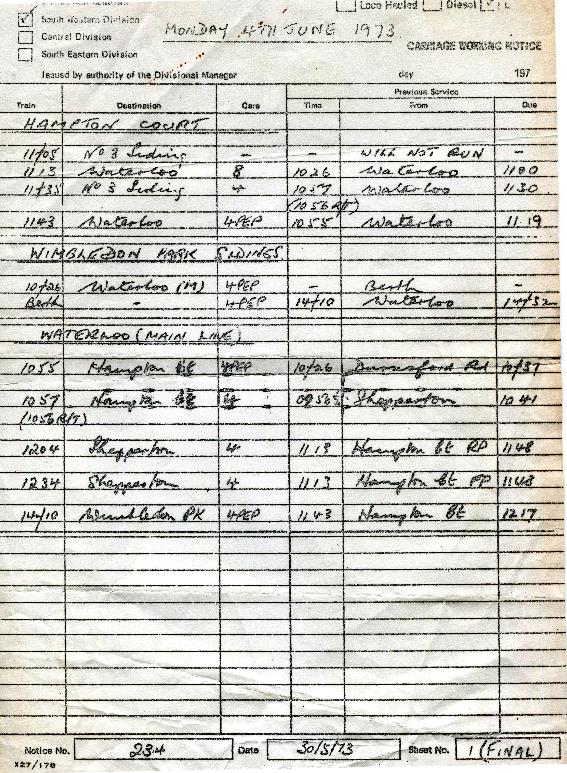 Loco Hauled Diesel
✓ South Western Division
MONDAY 4TH JUNE 1973
Central Division
CARRIAGE WORKING NOTICE
South Eastern Division
Issued by authority of the Divisional Manager day 197
Previous Service
Train Destination Cars Time From Due
HAMPTON COURT
11/05 No 3 Siding - - WILL NOT RUN -
1113 Waterloo 8 1026 Waterloo 1100
11/35 No 3 Siding 4 1057 Waterloo 1130
(1056 R/T)
1143 Waterloo 4PEP 1055 Waterloo 1119
WIMBLEDON PARK SIDINGS
10/26 Waterloo (M) 4PEP - Berth -
Berth - 4PEP 14/10 Waterloo 14/32
WATERLOO (MAIN LINE)
1055 Hampton Ct 4PEP 10/26 Durnsford Rd 10/37
1057 Hampton Ct 4 Shepperton 1041
(1056 R/T)
1204 Shepperton 4 1113 Hampton Ct RP 1148
1234 Shepperton 4 1113 Hampton Ct FP 1148
14/10 Wimbledon PK 4PEP 1143 Hampton Ct 1217
Notice No. 234 Date 30/5/73 Sheet No. 1 (FINAL)
X27/178